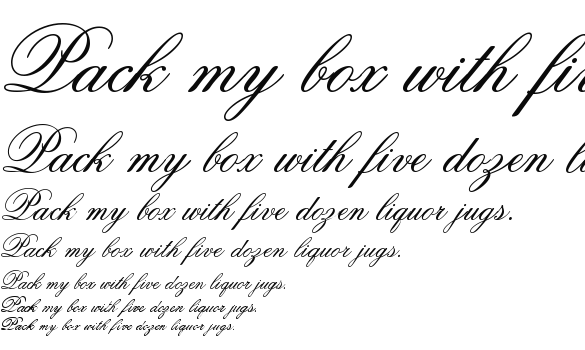 Pack my box with fiv
Pack my box with five dozen li
Pack my box with five dozen liquor jugs.
Pack my box with five dozen liquor jugs.
Pack my box with five dozen liquor jugs.
Pack my box with five dozen liquor jugs.
Pack my box with five dozen liquor jugs.